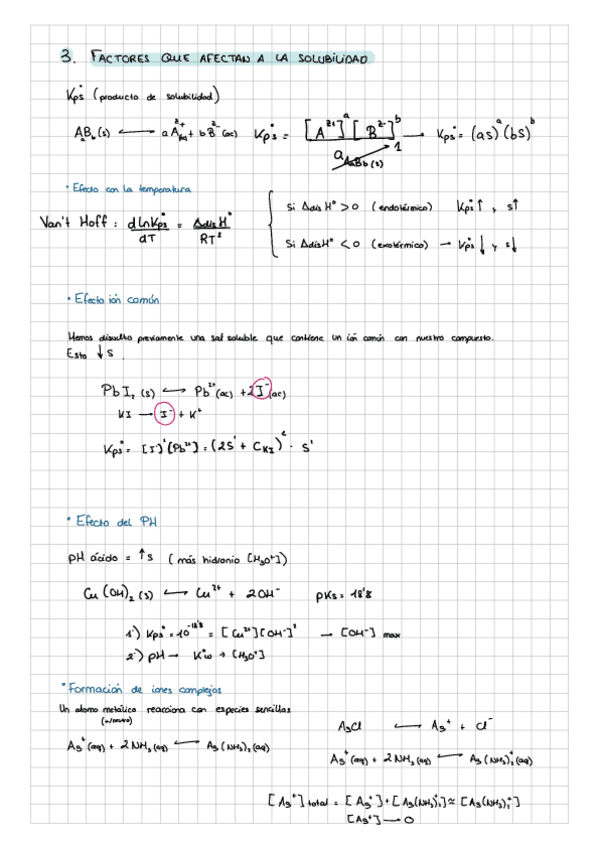 3. FACTORES QUE AFECTAN A LA SOLUBILIDAD
Kps° (producto de solubilidad)
AaBb (s) ⟷ a A²⁺(aq) + b B²⁻ (ac) Kps° = [A²⁺]ᵃ [B²⁻]ᵇ / a AaBb (s) → 1 → Kps° = (as)ᵃ (bs)ᵇ
• Efecto con la temperatura
Si ΔdisH° > 0 (endotérmico) Kps°↑ y s↑
Van't Hoff : dLnKps°/dT = ΔdisH°/RT²
Si ΔdisH° < 0 (exotérmico) → Kps°↓ y s↓
• Efecto ión común
Hemos disuelto previamente una sal soluble que contiene un ión común con nuestro compuesto.
Esto ↓ s.
PbI₂ (s) ⟷ Pb²⁺(ac) + 2I⁻(ac)
KI → I⁻ + K⁺
Kps° = [I⁻]²[Pb²⁺] = (2S' + C_KI)² · S'
• Efecto del PH
pH ácido = ↑s (más hidronio [H₃O⁺])
Cu(OH)₂ (s) ⟷ Cu²⁺ + 2OH⁻ pKs = 18'8
1°) Kps° = 10⁻¹⁸'⁸ = [Cu²⁺][OH⁻]² → [OH⁻] max
2°) pH → K°w → [H₃O⁺]
• Formación de iones complejos
Un átomo metálico reacciona con especies sencillas
AgCl ⟷ Ag⁺ + Cl⁻
Ag⁺(aq) + 2NH₃(aq) ⟷ Ag(NH₃)₂(aq)
Ag⁺(aq) + 2NH₃(aq) ⟷ Ag(NH₃)₂⁺(aq)
[Ag⁺] total = [Ag⁺] + [Ag(NH₃)₂⁺] ≈ [Ag(NH₃)₂⁺]
[Ag⁺] → 0